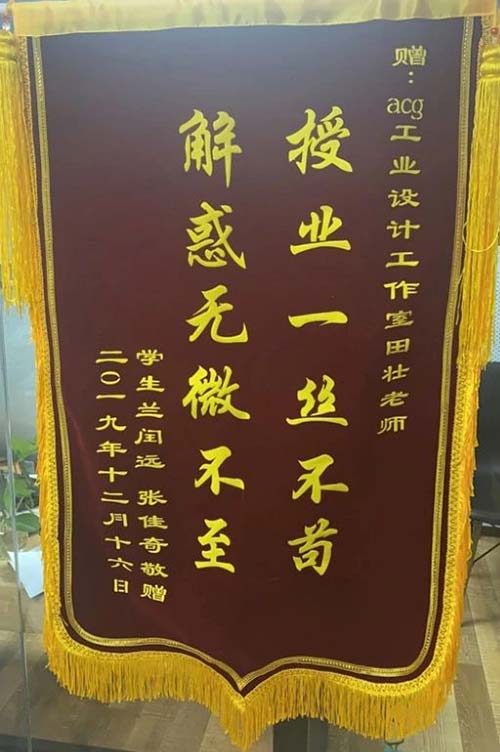 赠：acg工业设计工作室田壮老师
授业一丝不苟
解惑无微不至
学生兰闰远 张佳奇敬赠
二〇一九年十二月十六日